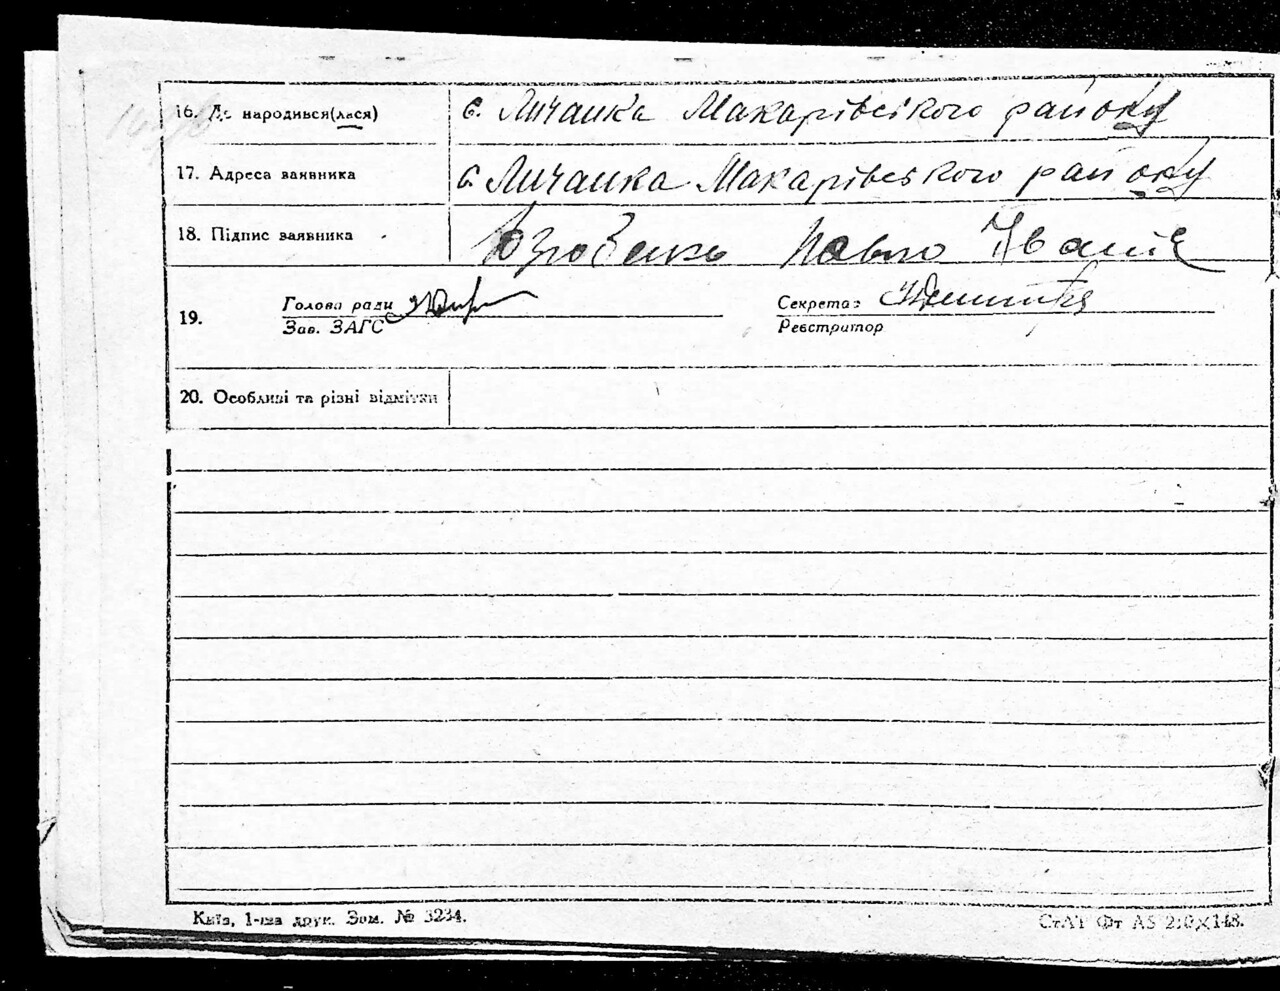 16. Де народився(лася) с. Личанка Макарівського району
17. Адреса заявника с. Личанка Макарівського району
18. Підпис заявника Павло
Голова ради Секретар
19.
Зав. ЗАГС Реєстратор
20. Особливі та різні відмітки
Київ, 1-ша друк. Зам. № 3234. СтАТ Фт А5 210×148.